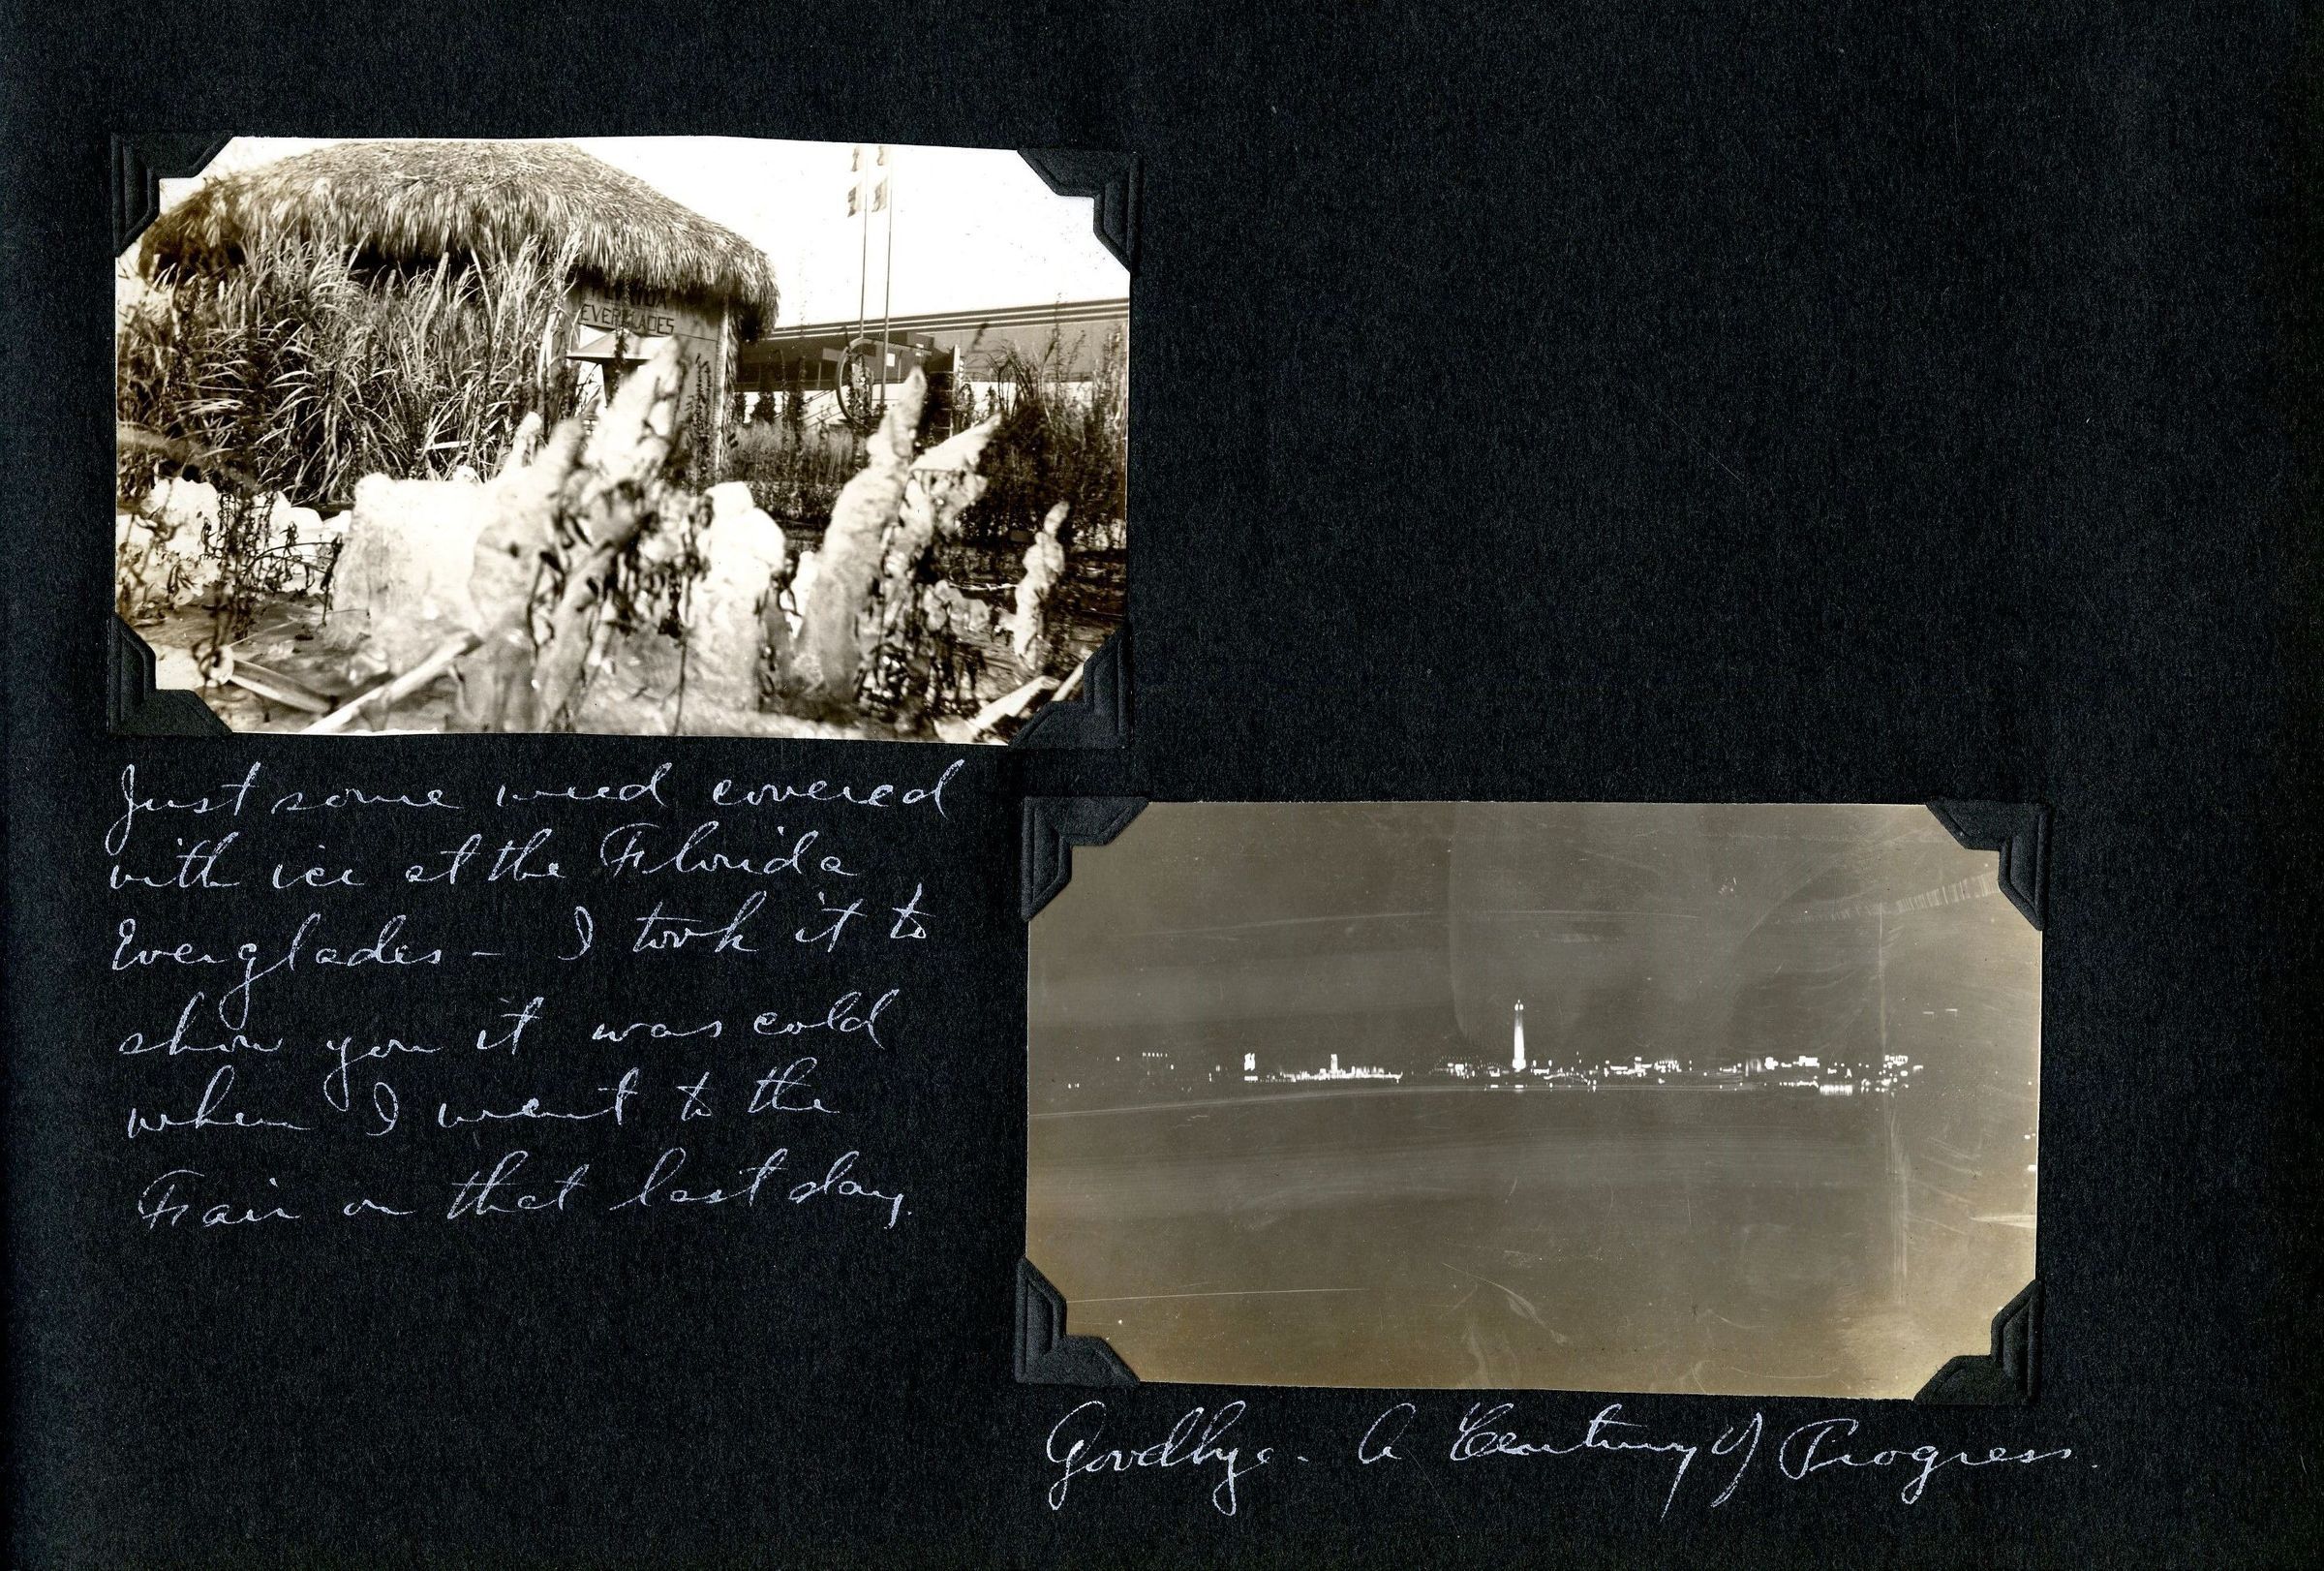 FLORIDA
EVERGLADES
Just some weed covered
with ice at the Florida
Everglades - I took it to
show you it was cold
when I went to the
Fair on that last day.
Goodbye - A Century of Progress.